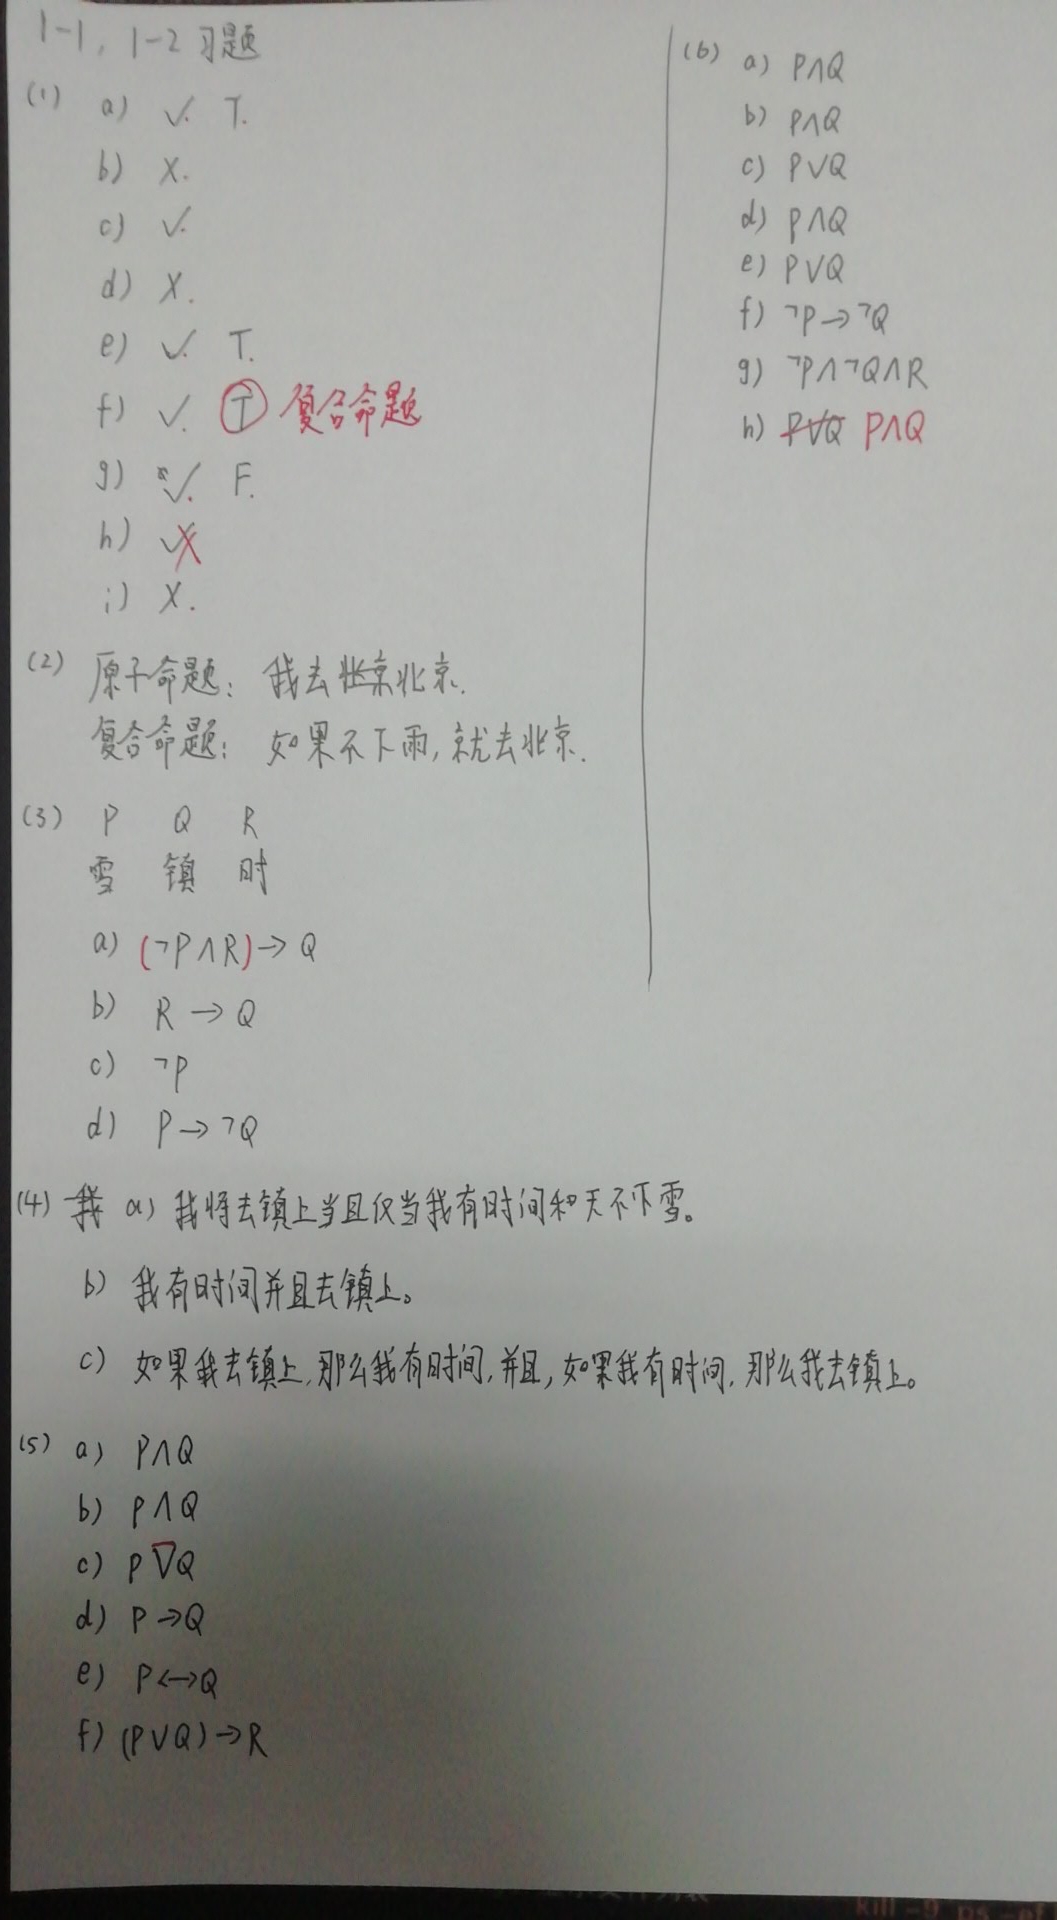 1-1, 1-2 习题
(1) a) ✓. T.
b) X.
c) ✓.
d) X.
e) ✓. T.
f) ✓. T 复合命题
g) ✓. F.
h) X
i) X.
(2) 原子命题: 我去北京北京.
复合命题: 如果不下雨, 就去北京.
(3) P Q R
雪 镇 时
a) (¬P∧R)→Q
b) R→Q
c) ¬P
d) P→¬Q
(4) 我 a) 我将去镇上当且仅当我有时间和天不下雪。
b) 我有时间并且去镇上。
c) 如果我去镇上, 那么我有时间, 并且, 如果我有时间, 那么我去镇上。
(5) a) P∧Q
b) P∧Q
c) P∨̅Q
d) P→Q
e) P<->Q
f) (P∨Q)→R
(6) a) P∧Q
b) P∧Q
c) P∨Q
d) P∧Q
e) P∨Q
f) ¬P→¬Q
g) ¬P∧¬Q∧R
h) P∨Q P∧Q
kill -9 ps -ef